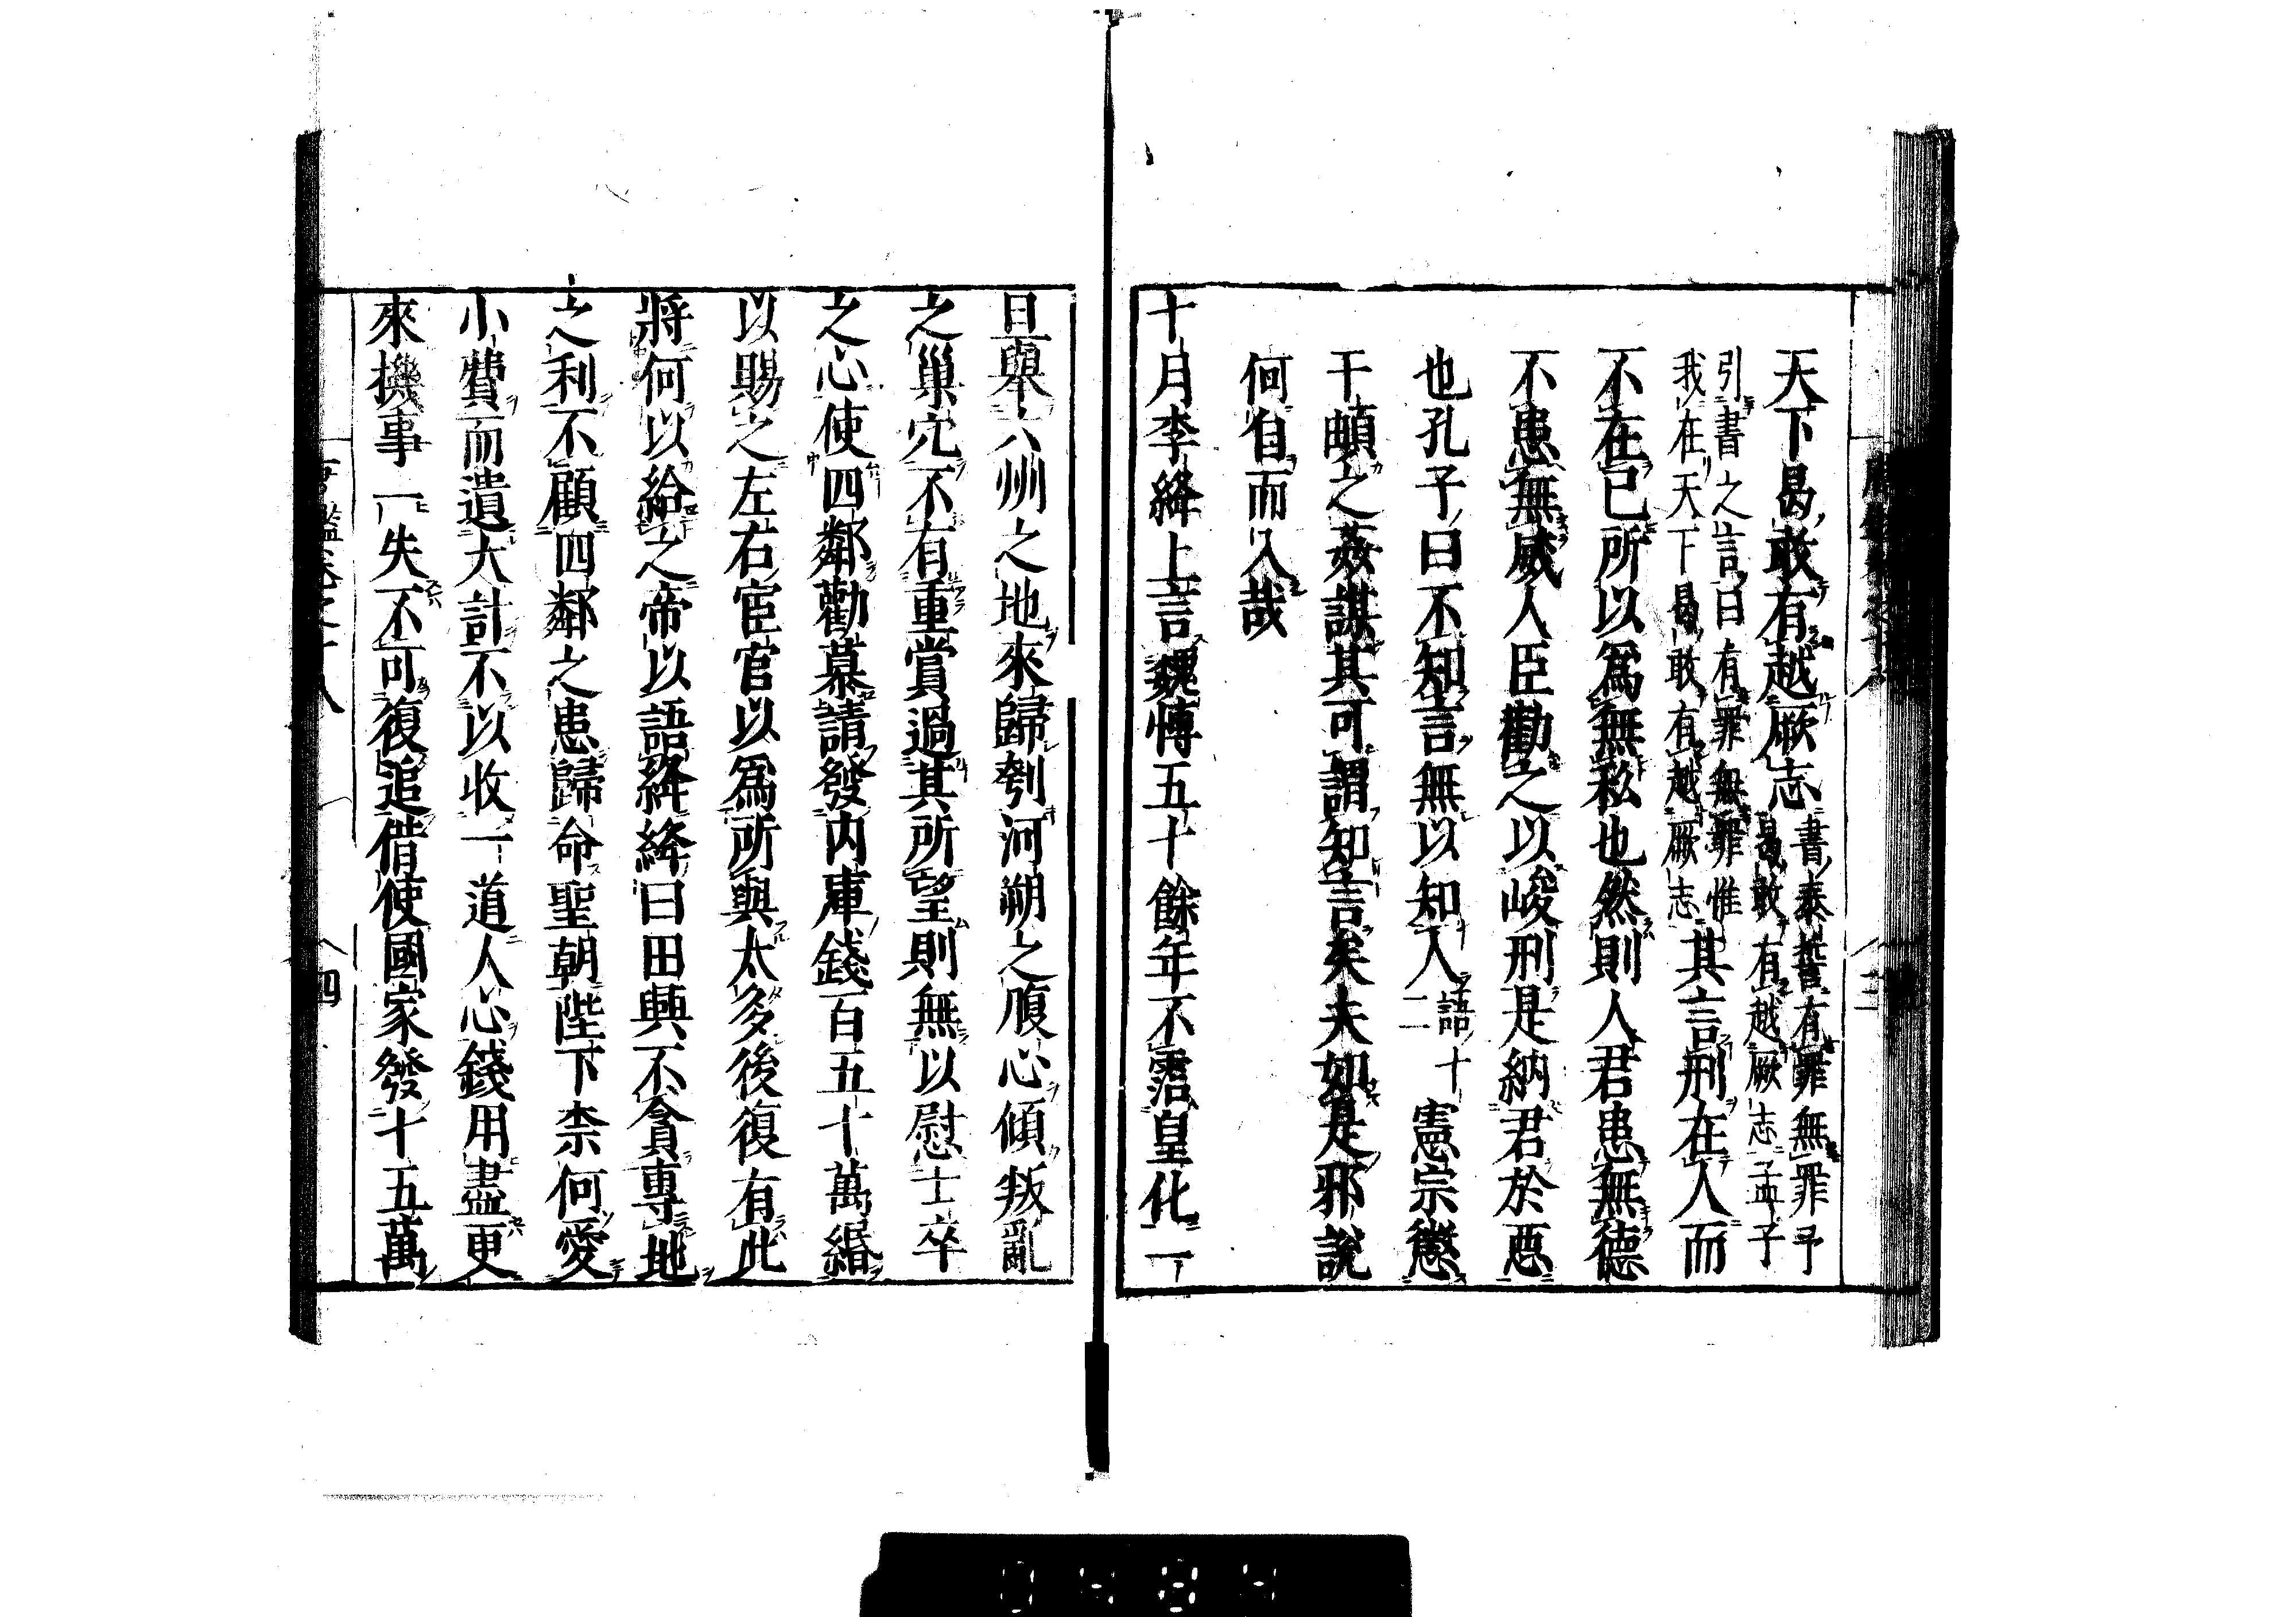 天下曷敢有越厥志書泰誓有罪無罪予曷敢有越厥志孟子
引書之言曰有罪無罪惟我在天下曷敢有越厥志其言刑在人而
不在已所以爲無私也然則人君患無德
不患無威人臣勸之以峻刑是納君於惡
也孔子曰不知言無以知人語二十憲宗懲
于頔之姦謀其可謂知言矣夫如是邪說
何自而入哉
十月李絳上言魏博五十餘年不霑皇化一
旦舉六州之地來歸刳河朔之腹心傾叛亂
之巢穴不有重賞過其所望則無以慰士卒
之心使四鄰勸慕請發内庫錢百五十萬緡
以賜之左右宦官以爲所與太多後復有此
將何以給之帝以語絳絳曰田興不貪專地
之利不顧四鄰之患歸命聖朝陛下柰何愛
小費而遺大計不以收一道人心錢用盡更
來機事一失不可復追借使國家發十五萬
四